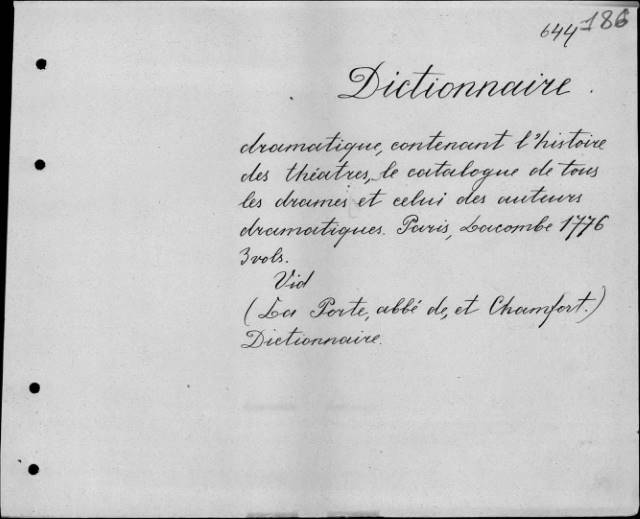 644-186
Dictionnaire.
dramatique, contenant l'histoire
des théatres, le catalogue de tous
les drames et celui des auteurs
dramatiques. Paris, Lacombe 1776
3 vols.
Vid
(La Porte, abbé de, et Chamfort.)
Dictionnaire.